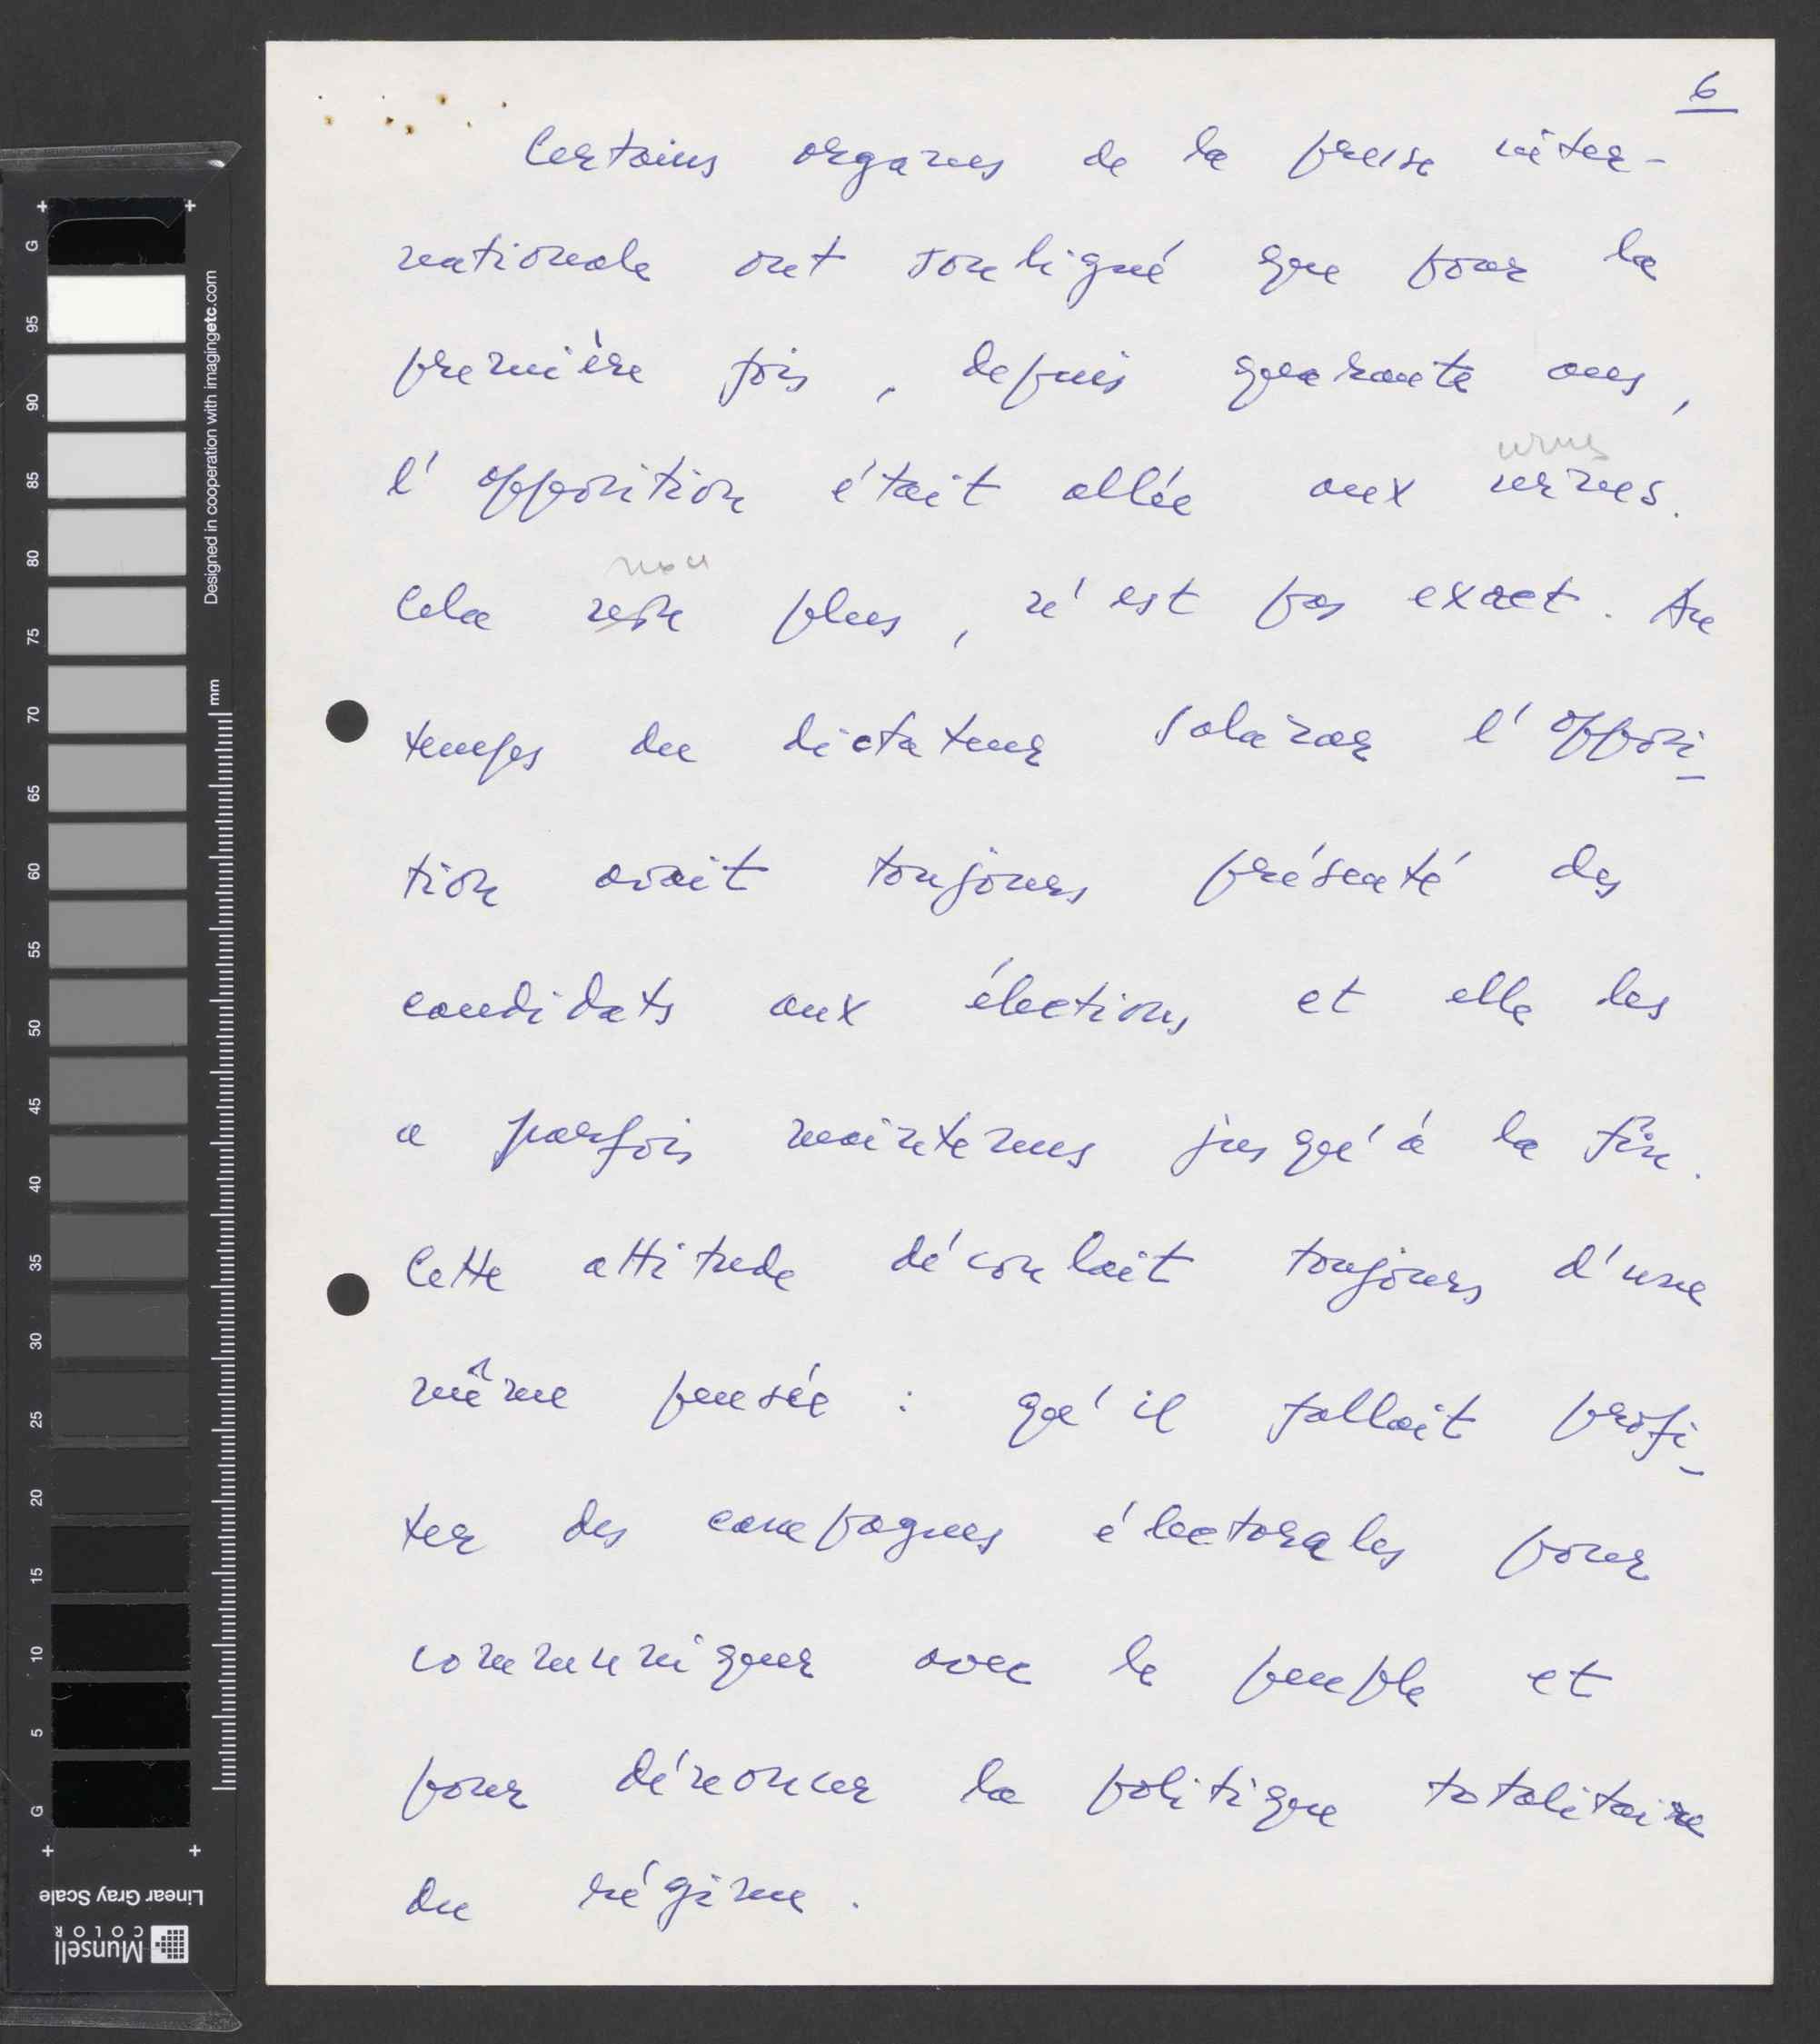 6
Certains organes de la presse inter-
nationale ont souligné que pour la
première fois, depuis quarante ans,
urnes
l'opposition était allée aux urnes.
non
Cela non plus, n'est pas exact. Au
temps du dictateur Salazar l'opposi-
tion avait toujours présenté des
candidats aux élections et elle les
a parfois maintenus jusqu'à la fin.
Cette attitude découlait toujours d'une
même pensée : qu'il fallait profi-
ter des campagnes électorales pour
communiquer avec le peuple et
pour dénoncer la politique totalitaire
du régime.
G
95
90
85
80
75
70
65
60
55
50
45
40
35
30
25
20
15
10
5
G
Designed in cooperation with imagingetc.com
mm
Linear Gray Scale
Munsell
COLOR